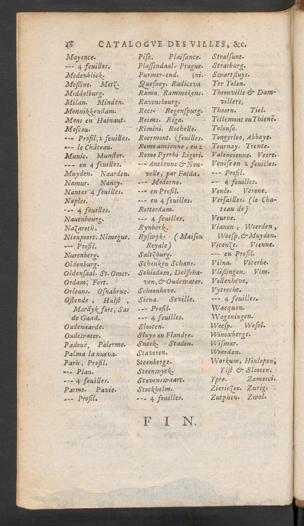 28 CATALOGVE DES VILLES, &c.
Mayence.
--- 4 feuilles.
Medenblick.
Messine. Metz.
Middelburg.
Milan. Minden.
Monnikkendam.
Mons en Hainaut.
Moscou.
--- Profil, 2 feuilles.
--- le Château.
Munic. Munster.
--- en 4 feuilles.
Muyden. Naarden.
Namur. Nancy.
Nantes 4 feuilles.
Naples.
--- 4 feuilles.
Nauenbourg.
Nazareth.
Nieuport. Nimegue.
--- Profil.
Nurenberg.
Oldenburg.
Oldensaal. St. Omer.
Ordam, Fort.
Orleans. Osnabruc.
Ostende, Hulst,
Mardyk fort, Sas
de Gand.
Oudenaarde.
Oudewater.
Padoue, Palerme.
Palma la nuova.
Paris, Profil.
--- Plan.
--- 4 feuilles.
Parme. Pavie.
--- Profil.
Pise. Plaisance.
Plassendaal. Prague.
Purmer-end. (ni.
Quesnoy. Radicova
Rama, Rammekens.
Ravensburg.
Rees. Regenspurg.
Reims. Riga.
Rimini. Rochelle.
Ruermont. 4 feuilles.
Rome ancienne, en 2
Rome Pyrrhi Ligorii.
--- Ancienne & Nou-
velle, par Falda.
--- Moderne.
--- en Profil.
--- en 4 feuilles.
Rotterdam.
--- 4 feuilles.
Rynberk.
Ryswyk (Maison
Royale)
Saltzburg.
Schenken Schans.
Schiedam, Delfsha-
ven, & Oudewater.
Schoonhove.
Siena. Seville.
--- Profil.
--- 4 feuilles.
Slooten.
Sluys en Flandre.
Sneek. Staden.
Stavoren.
Steenberge.
Steenwyck.
Stevenswaart.
Stockholm.
--- 4 feuilles.
Stralsunt.
Strasburg.
Swartsluys.
Ter Tolen.
Thionville & Dam-
villers.
Thoorn. Tiel.
Tillemont ou Thienè.
Tolouse.
Tongerloo, Abbaye.
Tournay. Trente.
Valencienne. Veere.
Venise en 2 feuilles.
--- Profil.
--- 4 feuilles.
Venlo. Verone.
Versailles. (le Cha-
teau de)
Veurne.
Vianen, Woerden,
Weesp, & Muyden.
Vicenze. Vienne.
--- en Profil.
Vilna. Vierhe.
Vlissingen. Vim.
Vollenhove.
Vytreche.
--- 4 feuilles.
Wacquen.
Wageningen.
Weesp. Wesel.
Winoxberge.
Wismar.
Woerden.
Workum, Hinlopen,
Ylst & Slooten.
Ypre. Zamosci.
Ziericzee. Zurig.
Zutphen. Zwol.
FIN.